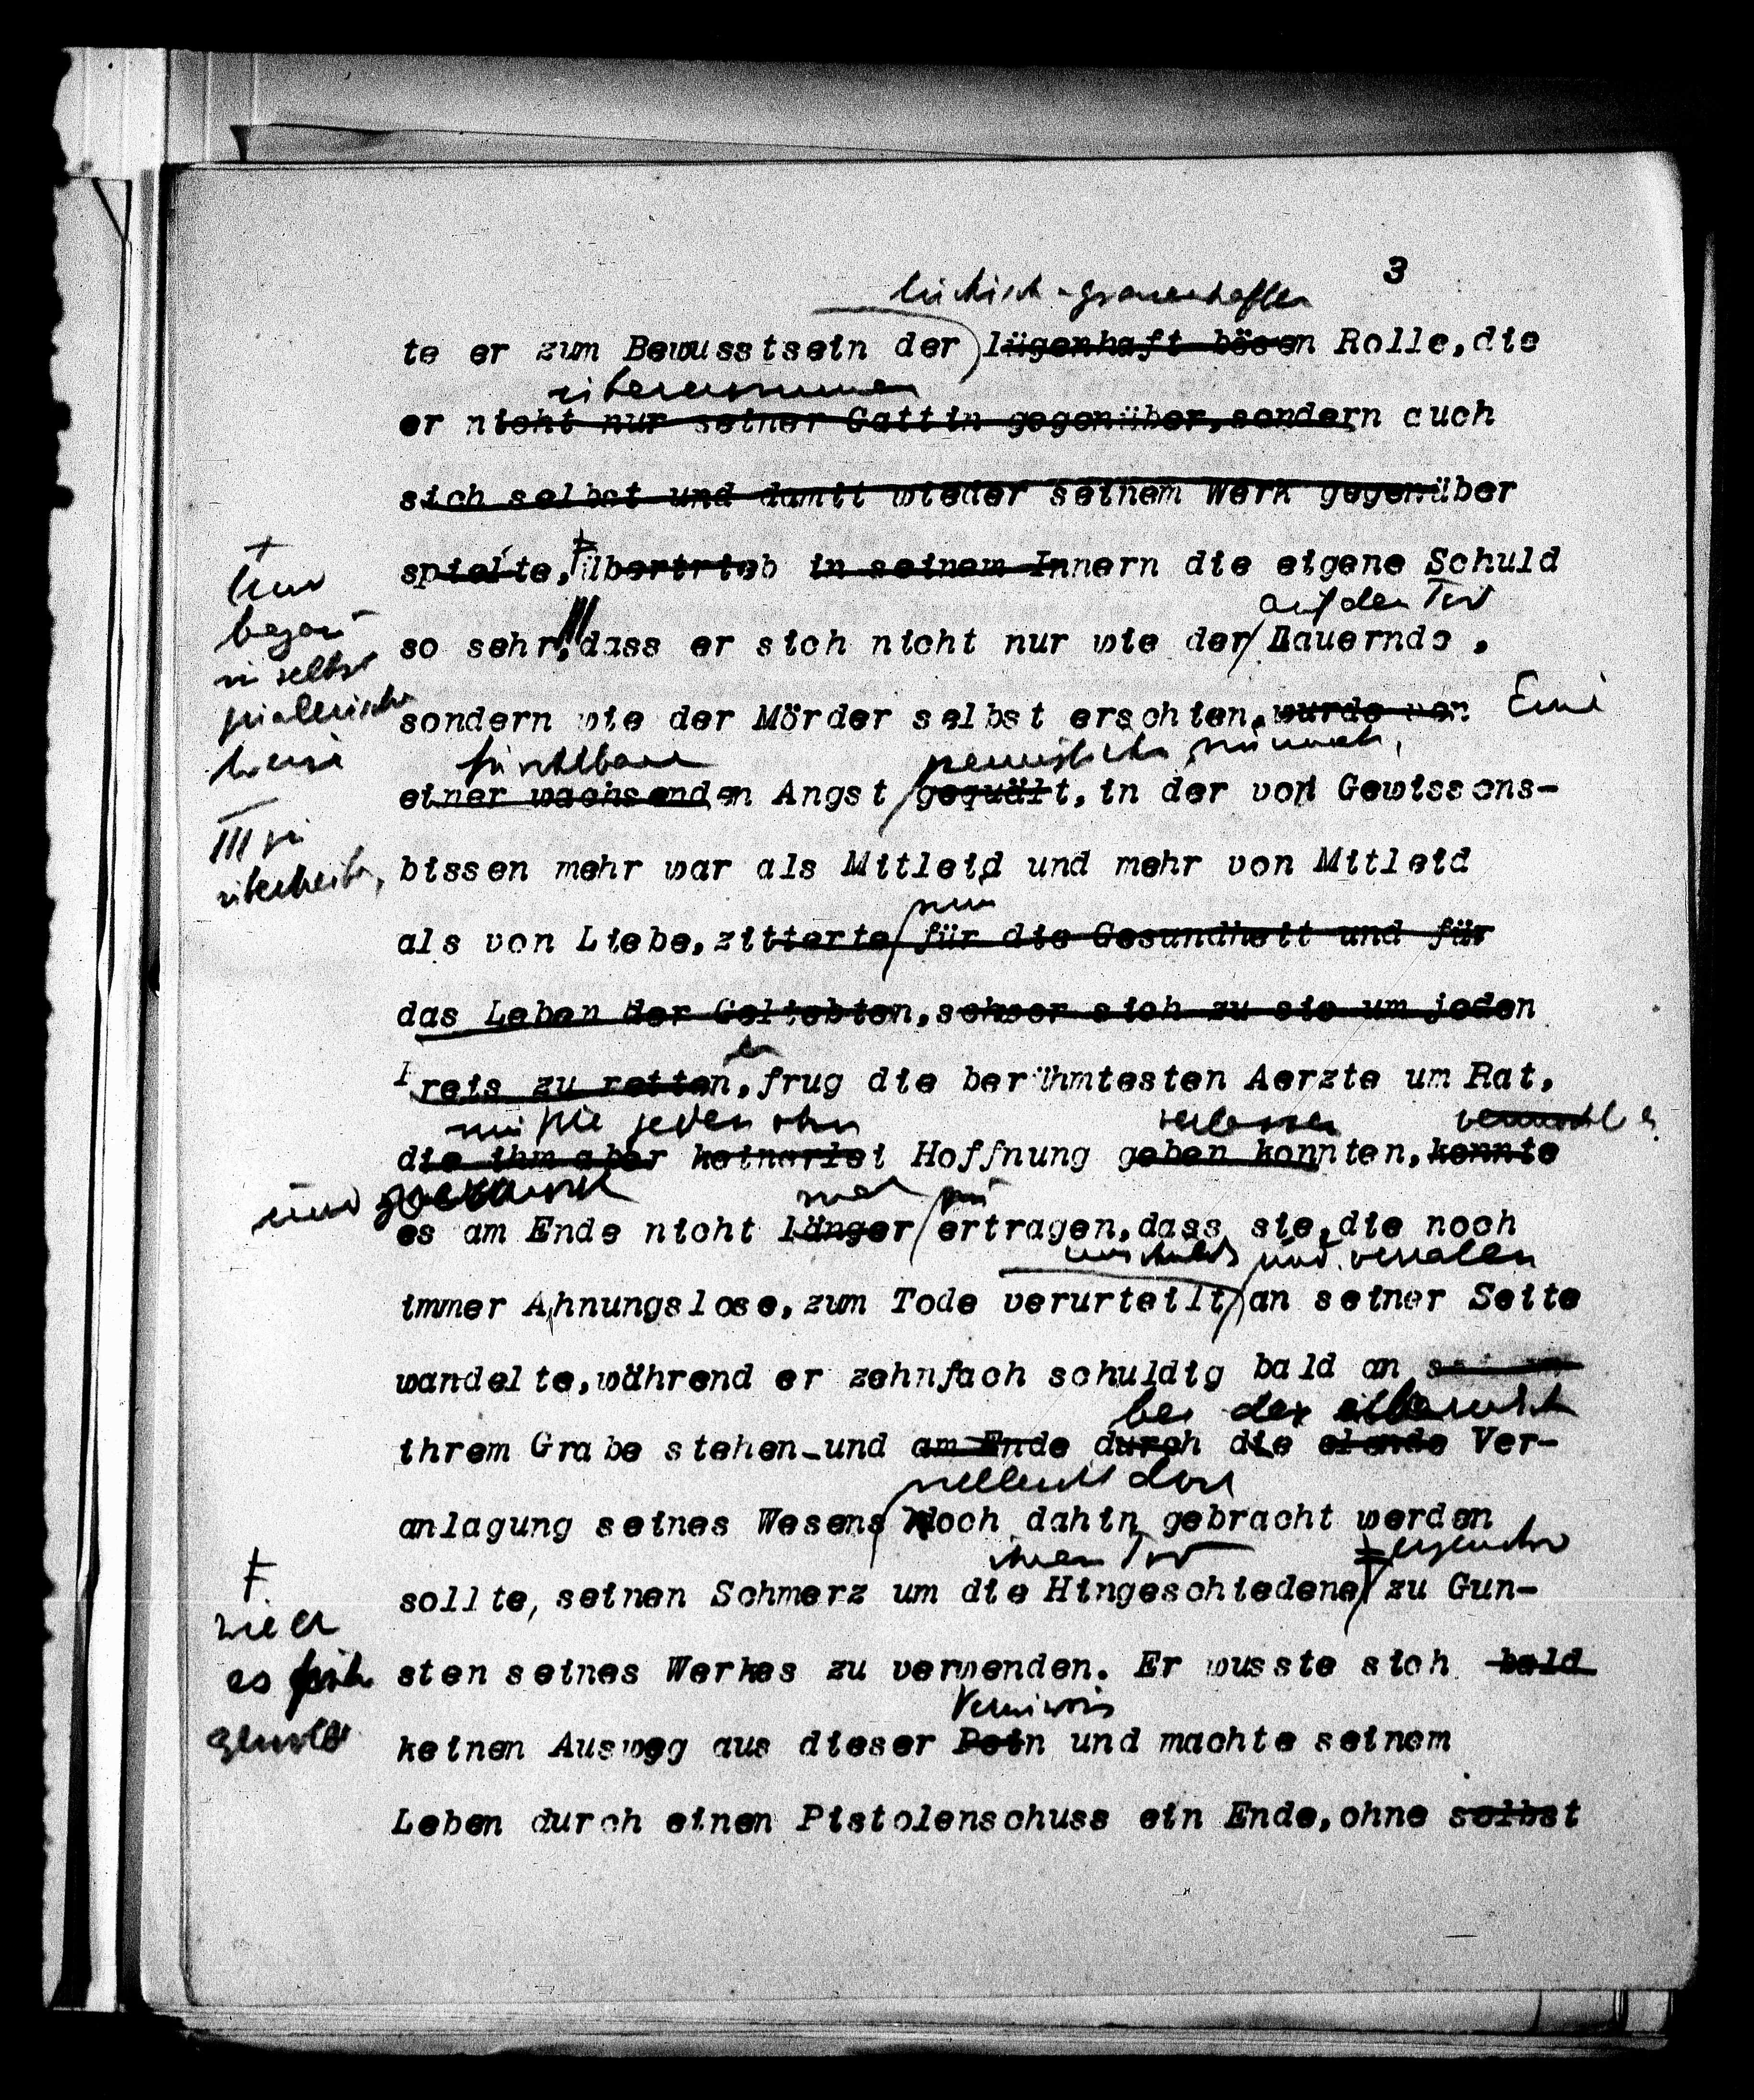 3
tückisch-grauenhaften
te er zum Bewusstsein der lügenhaft bösen Rolle, die
übernommen
er nicht nur seiner Gattin gegenüber, sondern auch
sich selbst und damit wieder seinem Werk gegenüber
spielte, übertrieb in seinem Innern die eigene Schuld
auf den Tod
so sehr, dass er sich nicht nur wie der Lauernde,
sondern wie der Mörder selbst erschien, wurde von Eine
furchtbare
einer wachsenden Angst gequält, in der von Gewissens-
bissen mehr war als Mitleid und mehr von Mitleid
nun
als von Liebe, zitterte für die Gesundheit und für
das Leben der Geliebten, schwor sich zu sie um jeden
er
Preis zu retten, frug die berühmtesten Aerzte um Rat,
die jeden ohne verlassen
die ihm aber keinerlei Hoffnung geben konnten, konnte
und
es am Ende nicht länger ertragen, dass sie, die noch
und verraten
immer Ahnungslose, zum Tode verurteilt an seiner Seite
wandelte, während er zehnfach schuldig bald an seinem
bei der
ihrem Grabe stehen und am Ende durch die elende Ver-
vielleicht doch
anlagung seines Wesens noch dahin gebracht werden
ihren Tod irgendwie
sollte, seinen Schmerz um die Hingeschiedene zu Gun-
sten seines Werkes zu verwenden. Er wusste sich bald
Verwirrg
keinen Ausweg aus dieser Pein und machte seinem
Leben durch einen Pistolenschuss ein Ende, ohne selbst
und
begann
in selbst
weise
III zu
übertreiben,
wie er
es früh
gewollt